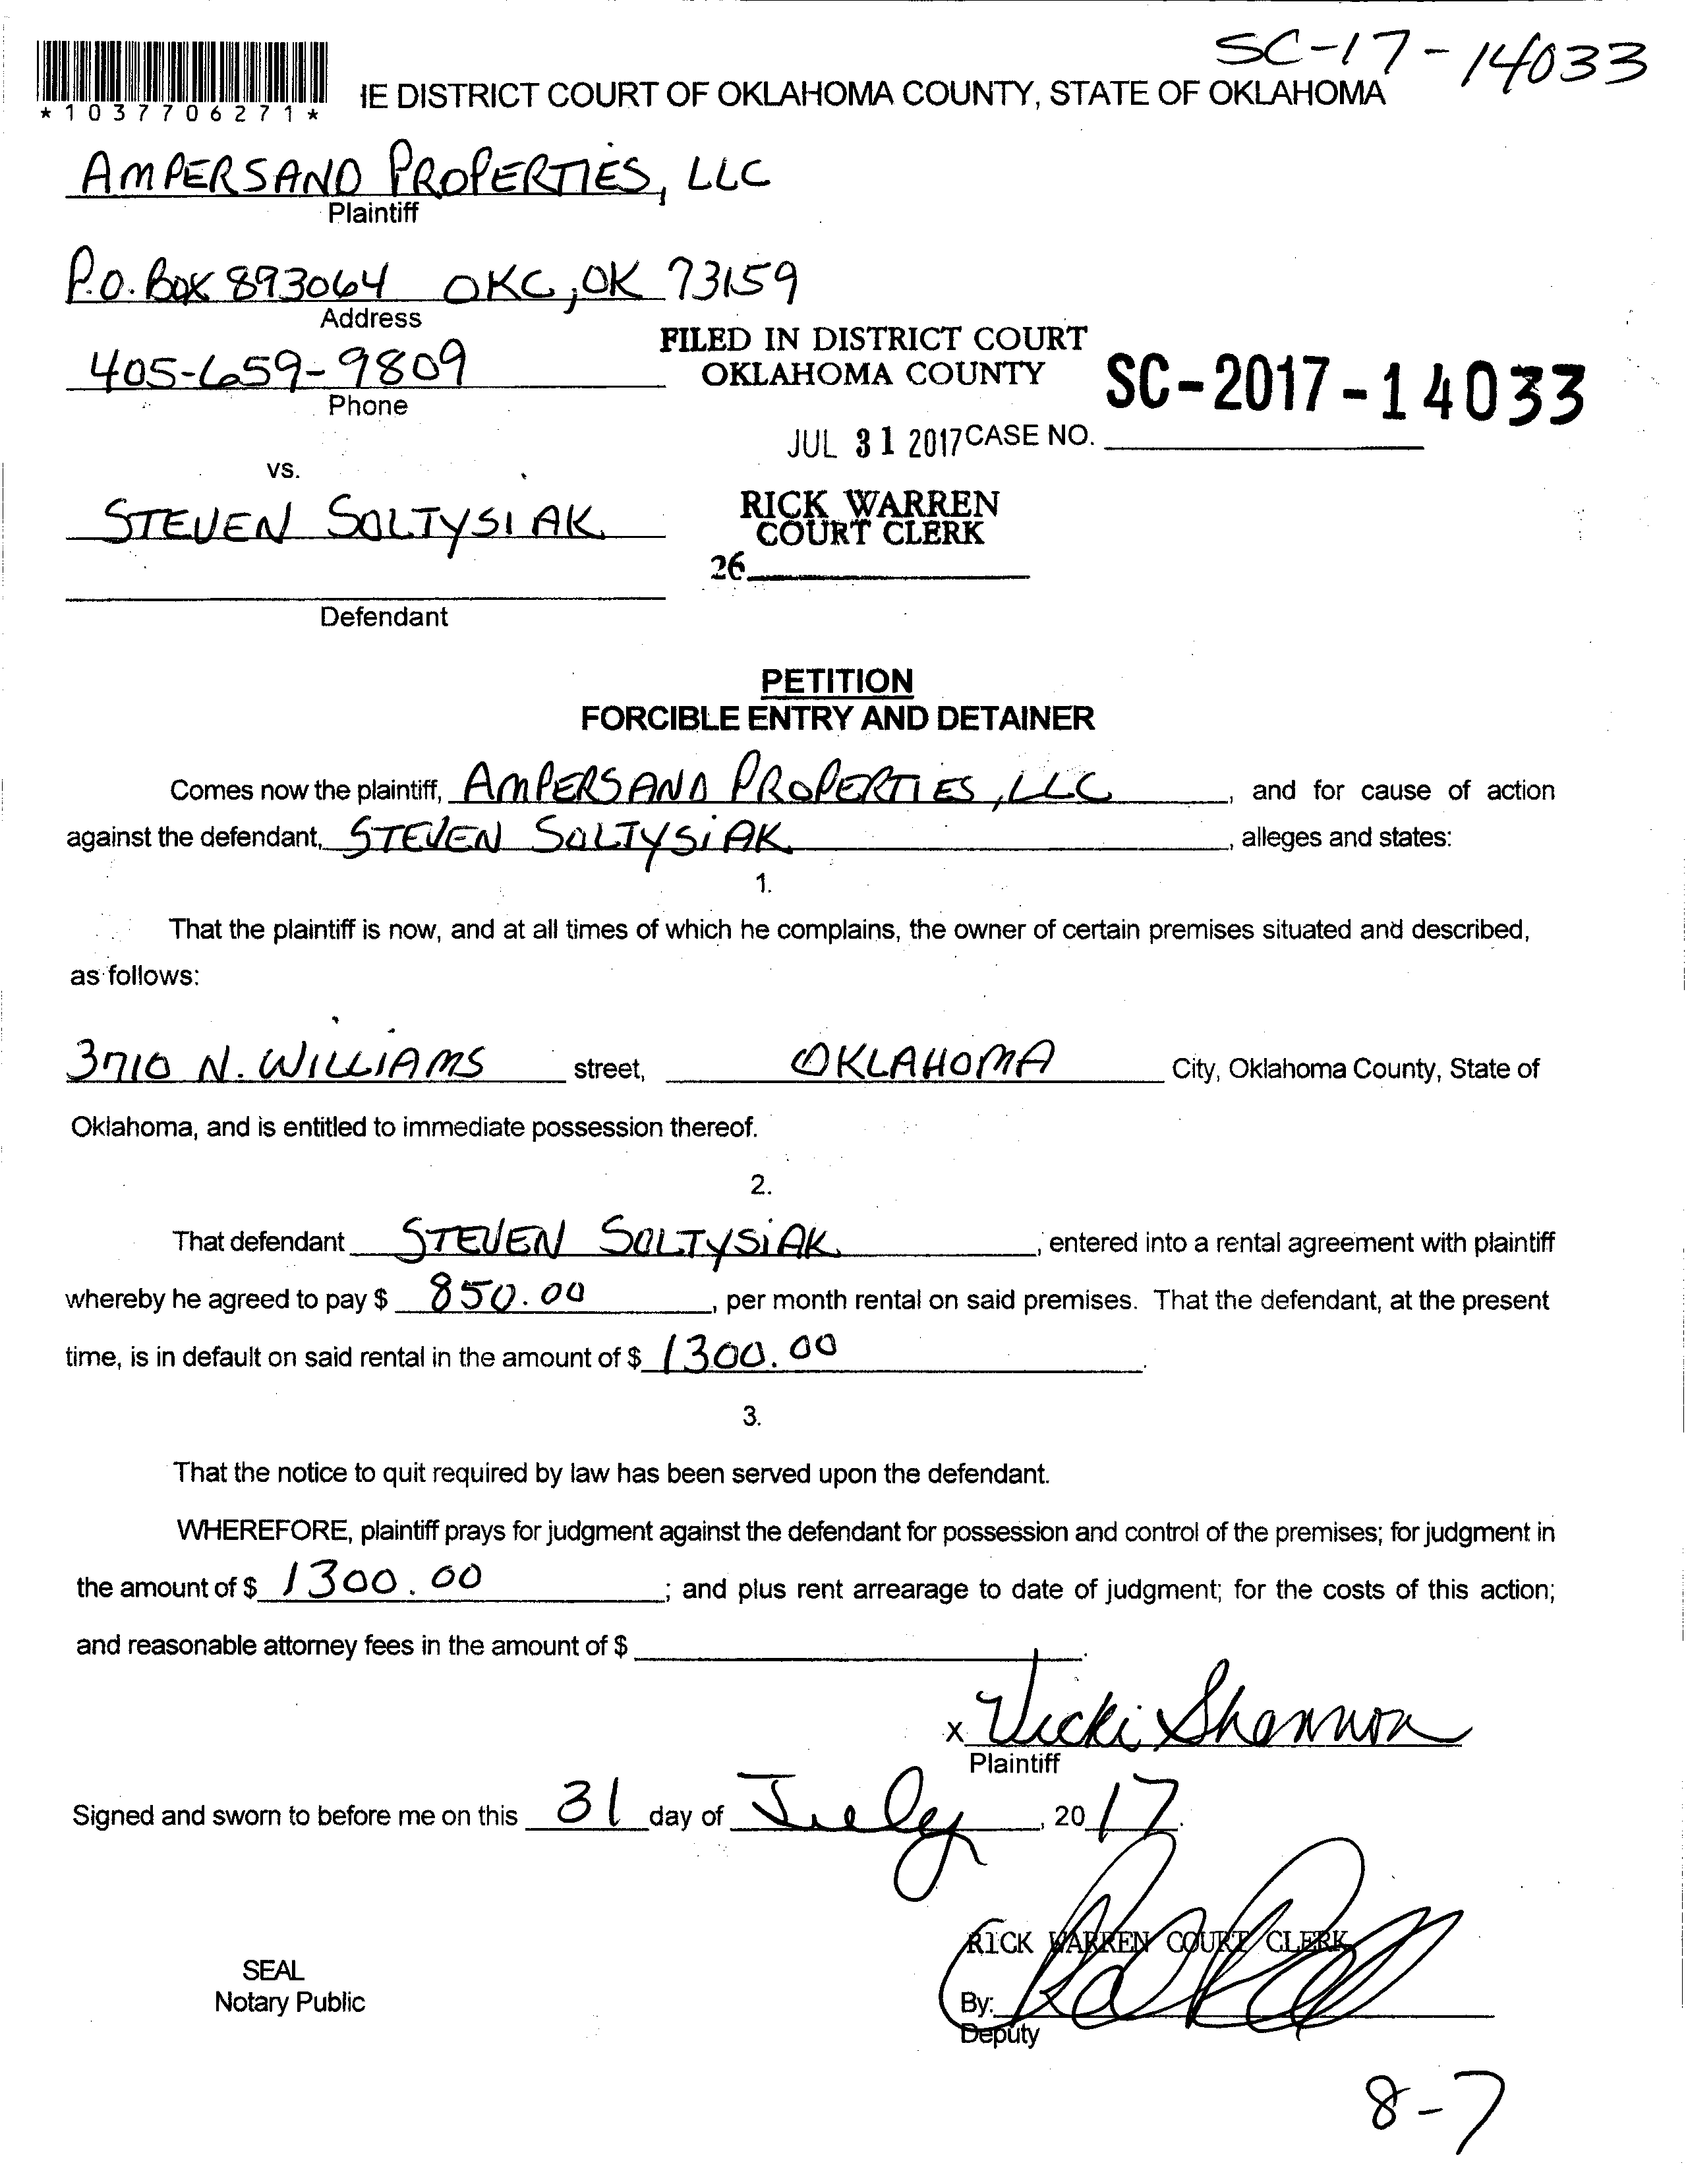 SC-17-14033
*1037706271*
IE DISTRICT COURT OF OKLAHOMA COUNTY, STATE OF OKLAHOMA
AMPERSAND PROPERTIES, LLC
Plaintiff
P.O. Box 893064 OKC, OK 73159
Address
405-659-9809
Phone
FILED IN DISTRICT COURT
OKLAHOMA COUNTY
SC-2017-14033
JUL 31 2017 CASE NO.
vs.
STEVEN SOLTYSIAK
RICK WARREN
COURT CLERK
26
Defendant
PETITION
FORCIBLE ENTRY AND DETAINER
Comes now the plaintiff, AMPERSAND PROPERTIES, LLC, and for cause of action
against the defendant, STEVEN SOLTYSIAK, alleges and states:
1.
That the plaintiff is now, and at all times of which he complains, the owner of certain premises situated and described,
as follows:
3710 N. WILLIAMS street, OKLAHOMA City, Oklahoma County, State of
Oklahoma, and is entitled to immediate possession thereof.
2.
That defendant STEVEN SOLTYSIAK, entered into a rental agreement with plaintiff
whereby he agreed to pay $ 850.00, per month rental on said premises. That the defendant, at the present
time, is in default on said rental in the amount of $ 1300.00.
3.
That the notice to quit required by law has been served upon the defendant.
WHEREFORE, plaintiff prays for judgment against the defendant for possession and control of the premises; for judgment in
the amount of $ 1300.00; and plus rent arrearage to date of judgment; for the costs of this action;
and reasonable attorney fees in the amount of $ .
x Vicki Shannon
Plaintiff
Signed and sworn to before me on this 31 day of July, 2017.
RICK WARREN COURT CLERK
SEAL
Notary Public
By:
Deputy
8-7